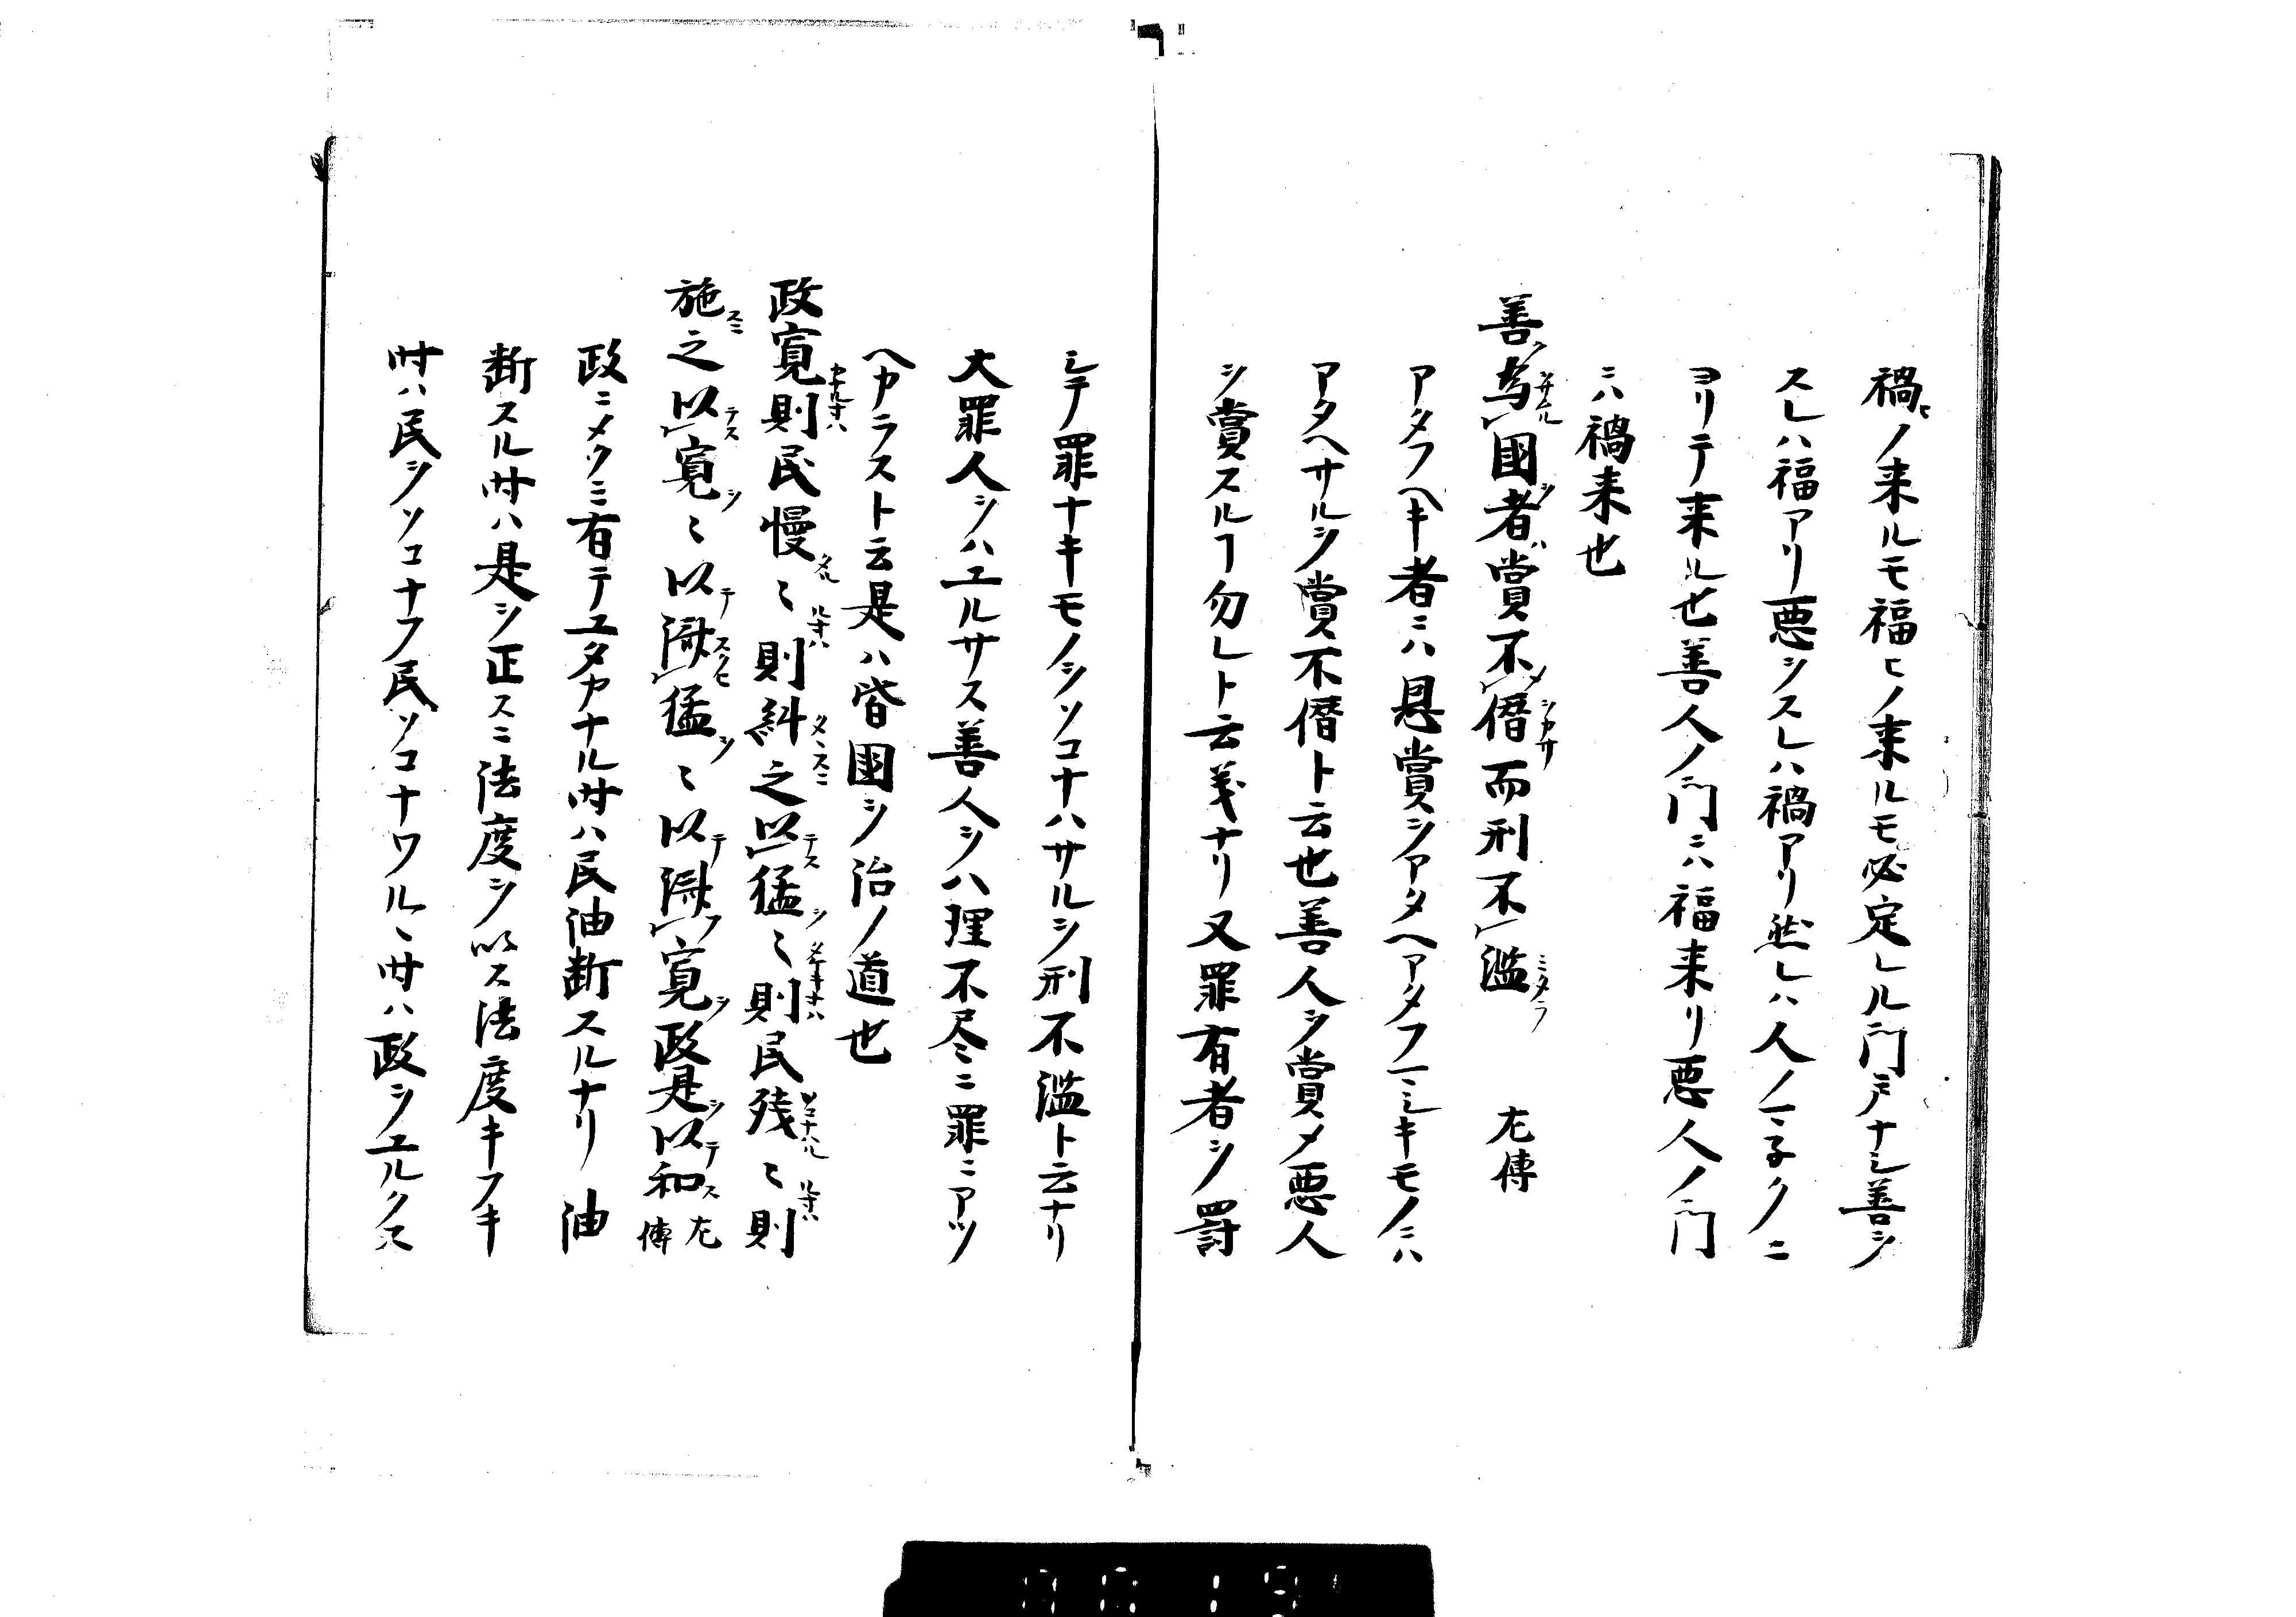 禍ヒノ来ルモ福ヒノ来ルモ必定レル門戸ナシ善ヲ
スレハ福アリ悪ヲスレハ禍アリ然レハ人ノマ子クニ
ヨリテ来ル也善人ノ門ニハ福来リ悪人ノ門
ニハ禍来也
善為國者賞不僭而刑不濫 左傳
アタフヘキ者ニハ恩賞ヲアタヘアタフマシキモノニハ
アタヘサルヲ賞不僭ト云也善人ヲ賞メ悪人
ヲ賞スルヿ勿レト云義ナリ又罪有者ヲ罰
シテ罪ナキモノヲソコナハサルヲ刑不濫ト云ナリ
大罪人ヲハユルサス善人ヲハ理不尽ニ罪ニアツ
ヘカラスト云是ハ皆國ヲ治ノ道也
政寛則民慢〻則糾之以猛〻則民残〻則
施之以寛〻以済猛〻以済寛政是以和 左傳
政ニメクミ有テユタカナル時ハ民油断スルナリ 油
断スル時ハ是ヲ正スニ法度ヲ以ス法度キフキ
時ハ民ヲソコナフ民ソコナワルヽ時ハ政ヲユルクス